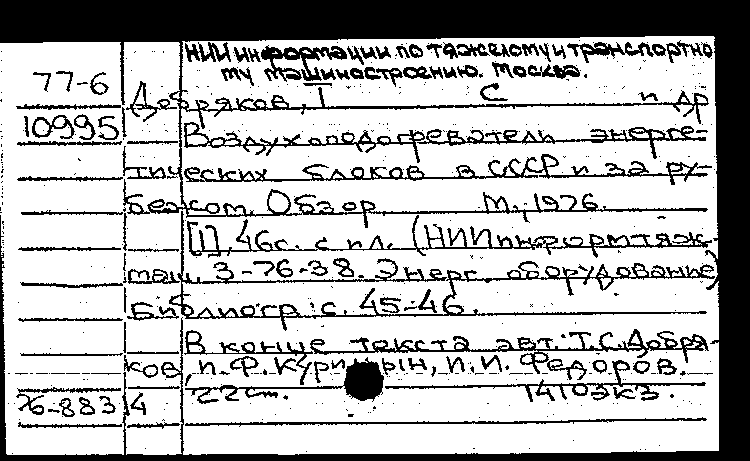 НИИ информации по тяжелому и транспортно
му машиностроению. Москва.
77-6
Добряков, Т С и др
10995
Воздухоподогреватели энерге-
тических блоков в СССР и за ру-
бежом. Обзор. М., 1976.
[1], 46с. с ил. (НИИинформтяж-
маш. 3-76-38. Энерг. оборудование)
Библиогр.: с. 45-46.
В конце текста авт.: Т.С. Добря-
ков, П.Ф. П.И. Федоров.
76-883 14 22см. 1410экз.